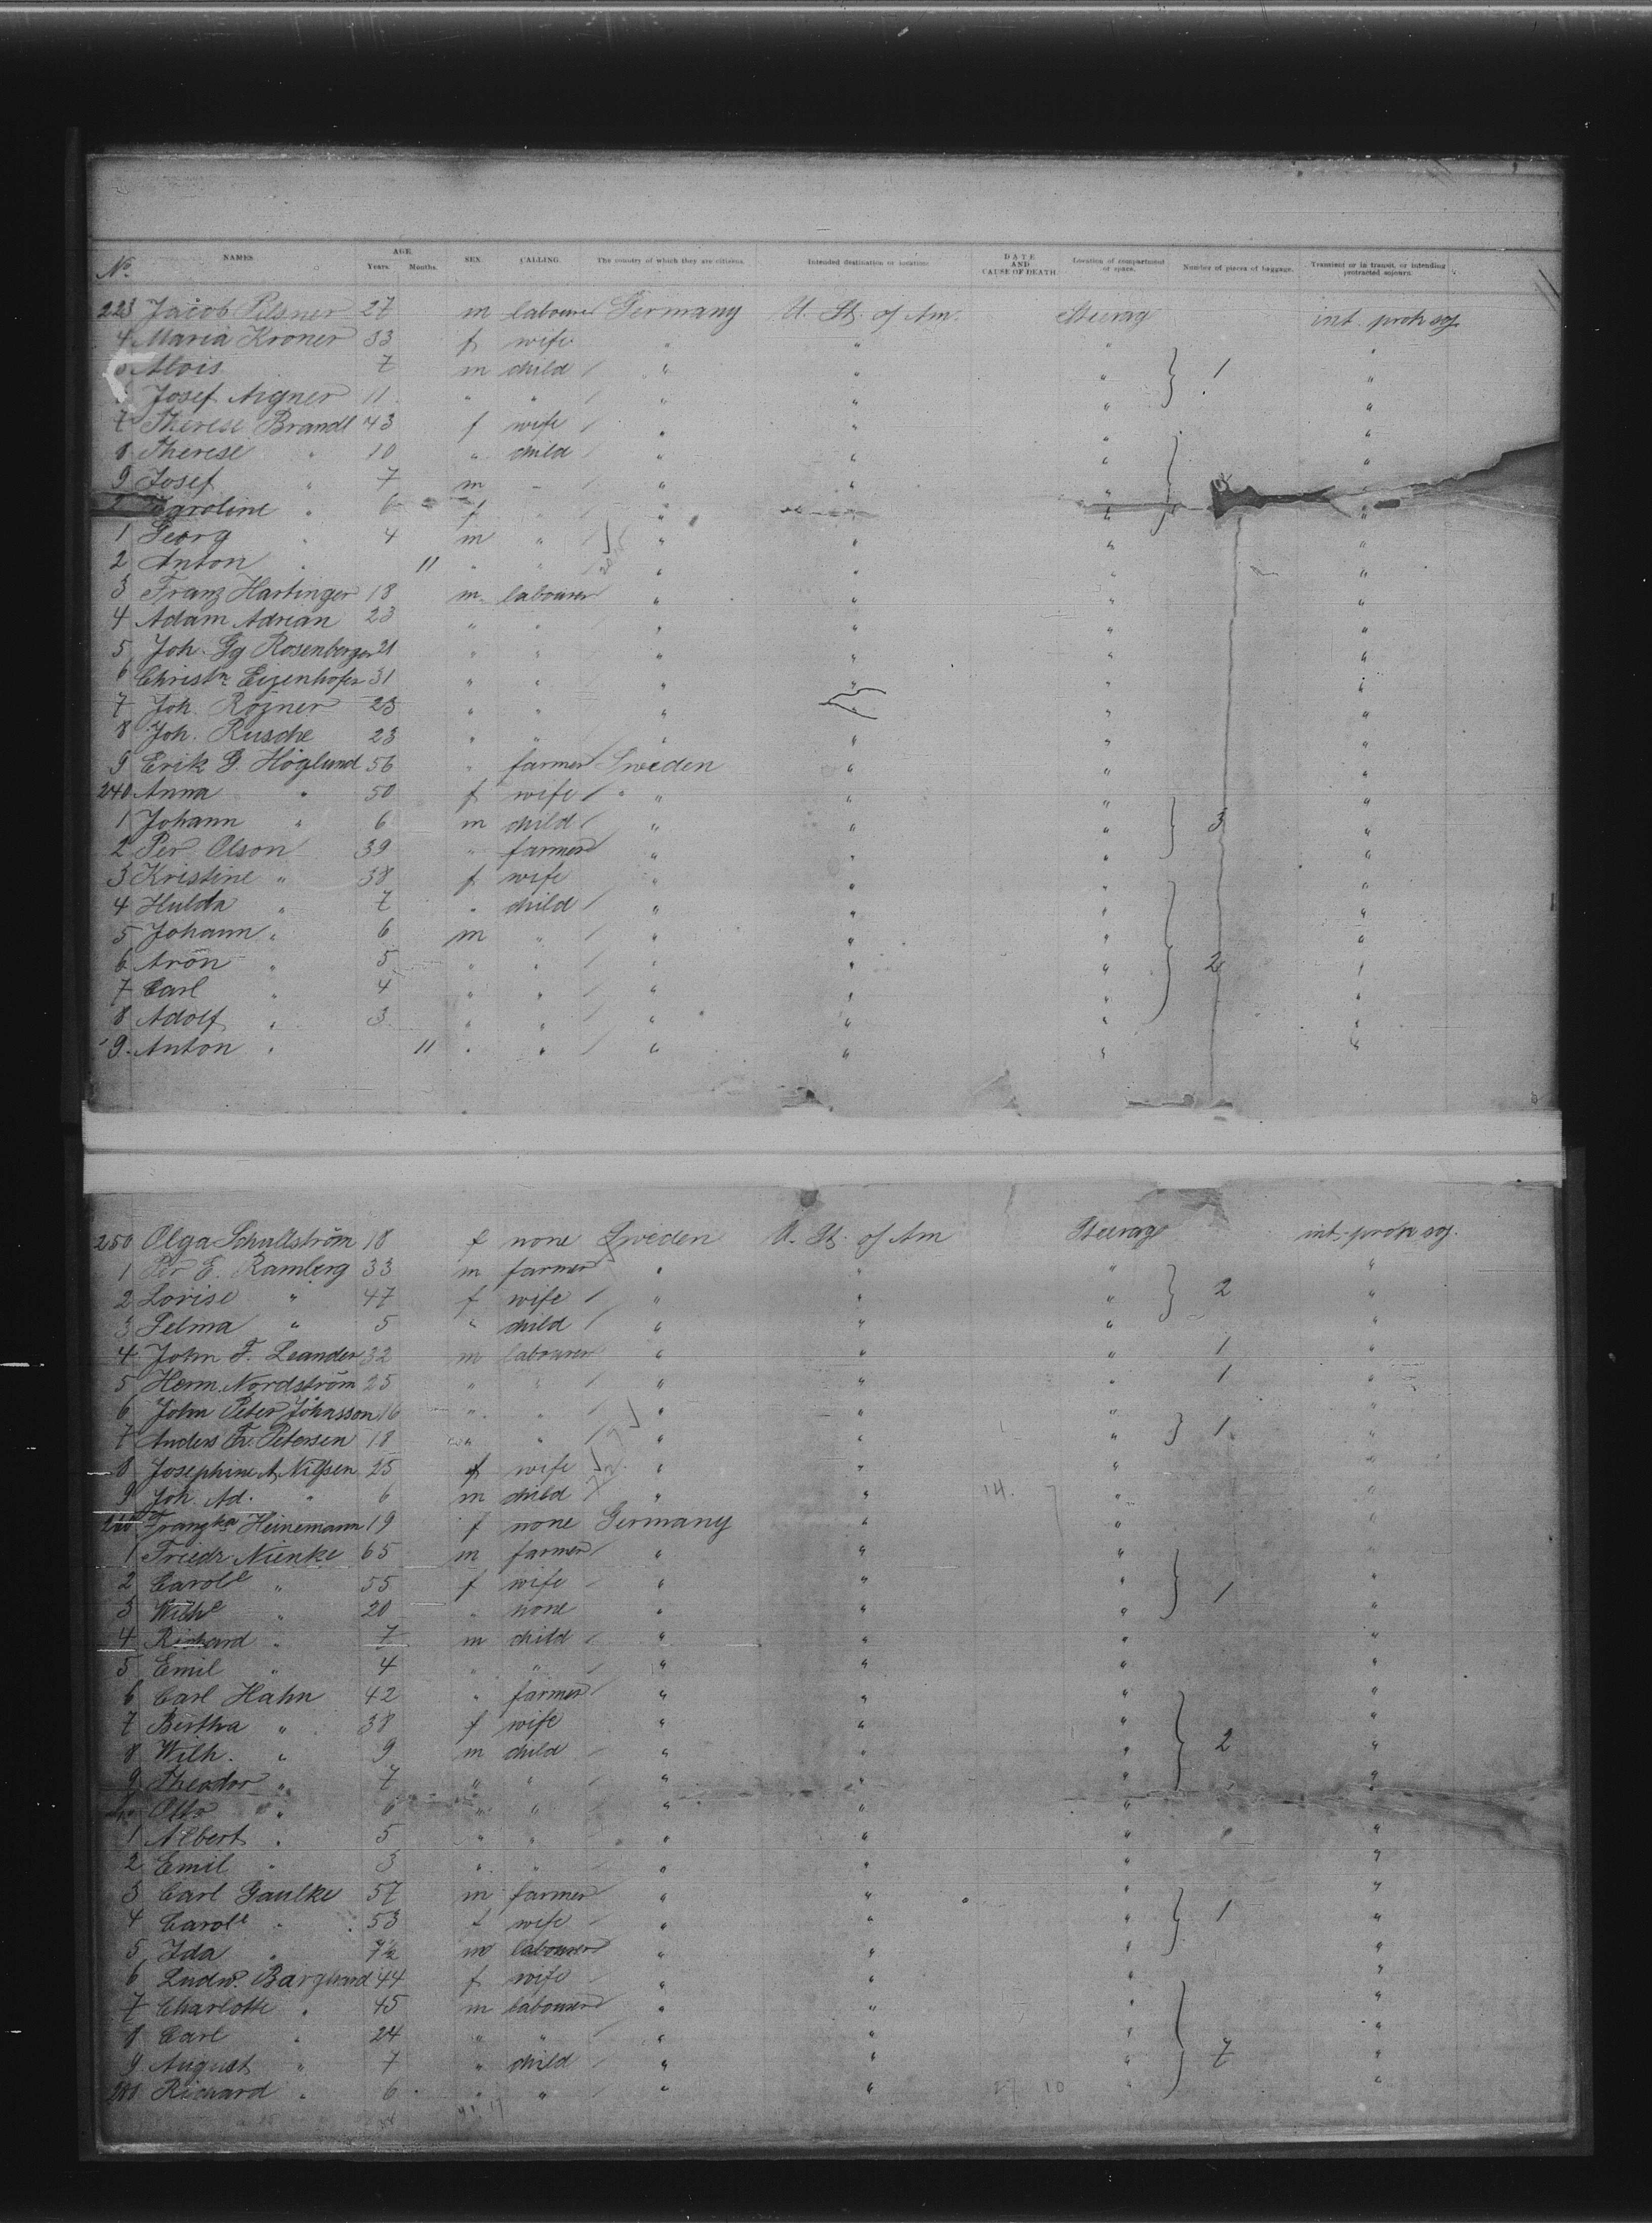 No. NAMES. AGE. Years. Months. SEX. CALLING. The country of which they are citizens. Intended destination or location. DATE AND CAUSE OF DEATH. Location of compartment or space. Number of pieces of baggage. Transient or in transit, or intending protracted sojourn.
223 Jacob Pilsner 27 m labourer Germany U. St. of Am. Steerage int. protr. soj.
4 Maria Kroner 33 f wife " " " "
Alois 7 m child " " " 1 "
Josef Aigner 11 " " " " " "
7 Therese Brandl 43 f wife " " " "
8 Therese " 10 " child " " " "
9 Josef " 7 m " " " " "
Karoline " 6 f " " " " "
1 Georg " 4 m " " " " "
2 Anton " 11 " " " " " "
3 Franz Hartinger 18 m labourer " " " "
4 Adam Adrian 23 " " " " " "
5 Joh. Gg Rosenberger 21 " " " " " "
6 Christn Eizenhofer 31 " " " " " "
7 Joh. Rözner 23 " " " " " "
8 Joh. Rusche 23 " " " " " "
9 Erik G. Höglund 56 " farmer Sweden " " "
240 Anna " 50 f wife " " " "
1 Johann " 6 m child " " " 3 "
2 Per Olson 39 " farmer " " " "
3 Kristine " 38 f wife " " " "
4 Hulda " 7 " child " " " "
5 Johann " 6 m " " " " "
6 Aron " 5 " " " " " 2 "
7 Carl " 4 " " " " " "
8 Adolf " 3 " " " " " "
9 Anton " 11 " " " " " "
250 Olga Schullström 18 f none Sweden U. St. of Am Steerage int. protr. soj.
1 Per E. Ramberg 33 m farmer " " " "
2 Lovise " 47 f wife " " " 2 "
3 Selma " 5 " child " " " "
4 John F. Leander 32 m labourer " " " 1 "
5 Herm. Nordström 25 " " " " " 1 "
6 John Peter Johasson 16 " " " " " "
7 Anders Fr. Petersen 18 " " " " " 1 "
8 Josephine A. Nilsen 25 f wife " " " "
9 Joh. Ad. " 6 m child " " 14. " "
260 Franzka Heinemann 19 f none Germany " " "
1 Friedr Nienke 65 m farmer " " " "
2 Carole " 55 f wife " " " "
3 Wilhe " 20 " none " " " 1 "
4 Richard " 7 m child " " " "
5 Emil " 4 " " " " " "
6 Carl Hahn 42 " farmer " " " "
7 Bertha " 38 f wife " " " "
8 Wilh. " 9 m child " " " 2 "
9 Theodor " 7 " " " " " "
Otto " 6 " " " " "
1 Albert " 5 " " " " " "
2 Emil " 3 " " " " " "
3 Carl Gaulke 57 m farmer " " " "
4 Carole " 53 f wife " " " 1 "
5 Ida " 7½ m labourer " " " "
6 Ludw. 44 f wife " " " "
7 Charlotte " 45 m labourer " " " "
8 Carl " 24 " " " " " "
9 August " 7 " child " " " 7 "
280 Richard " 6 " " " " 27 10 " "